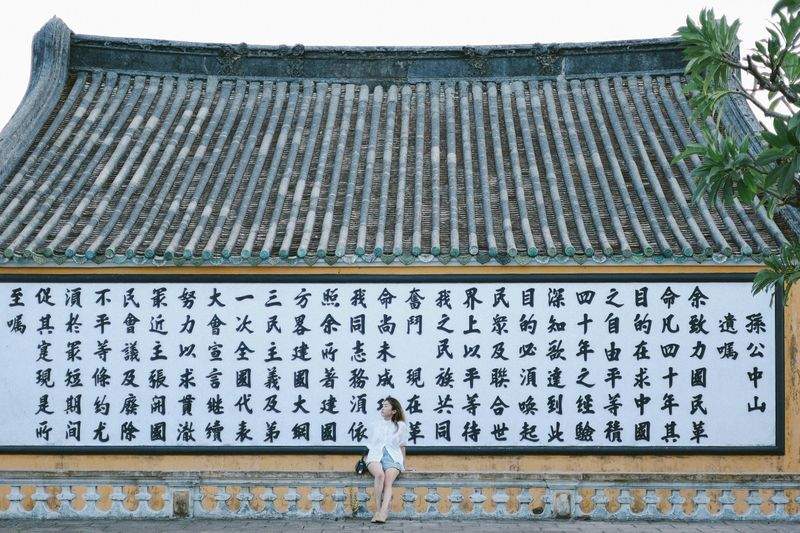 孫公中山
遺囑
余致力國民革
命凡四十年其
目的在求中國
之自由平等積
四十年之經驗
深知欲達到此
目的必須喚起
民眾及聯合世
界上以平等待
我之民族共同
奮鬥 現在革
命尚未成
我同志務須依
照余所著建國
方畧建國大綱
三民主義及弟
一次全國代表
大會宣言繼續
努力以求貫澈
最近主張開國
民會議及廢除
不平等條約尤
須於最短期間
促其實現是所
至囑